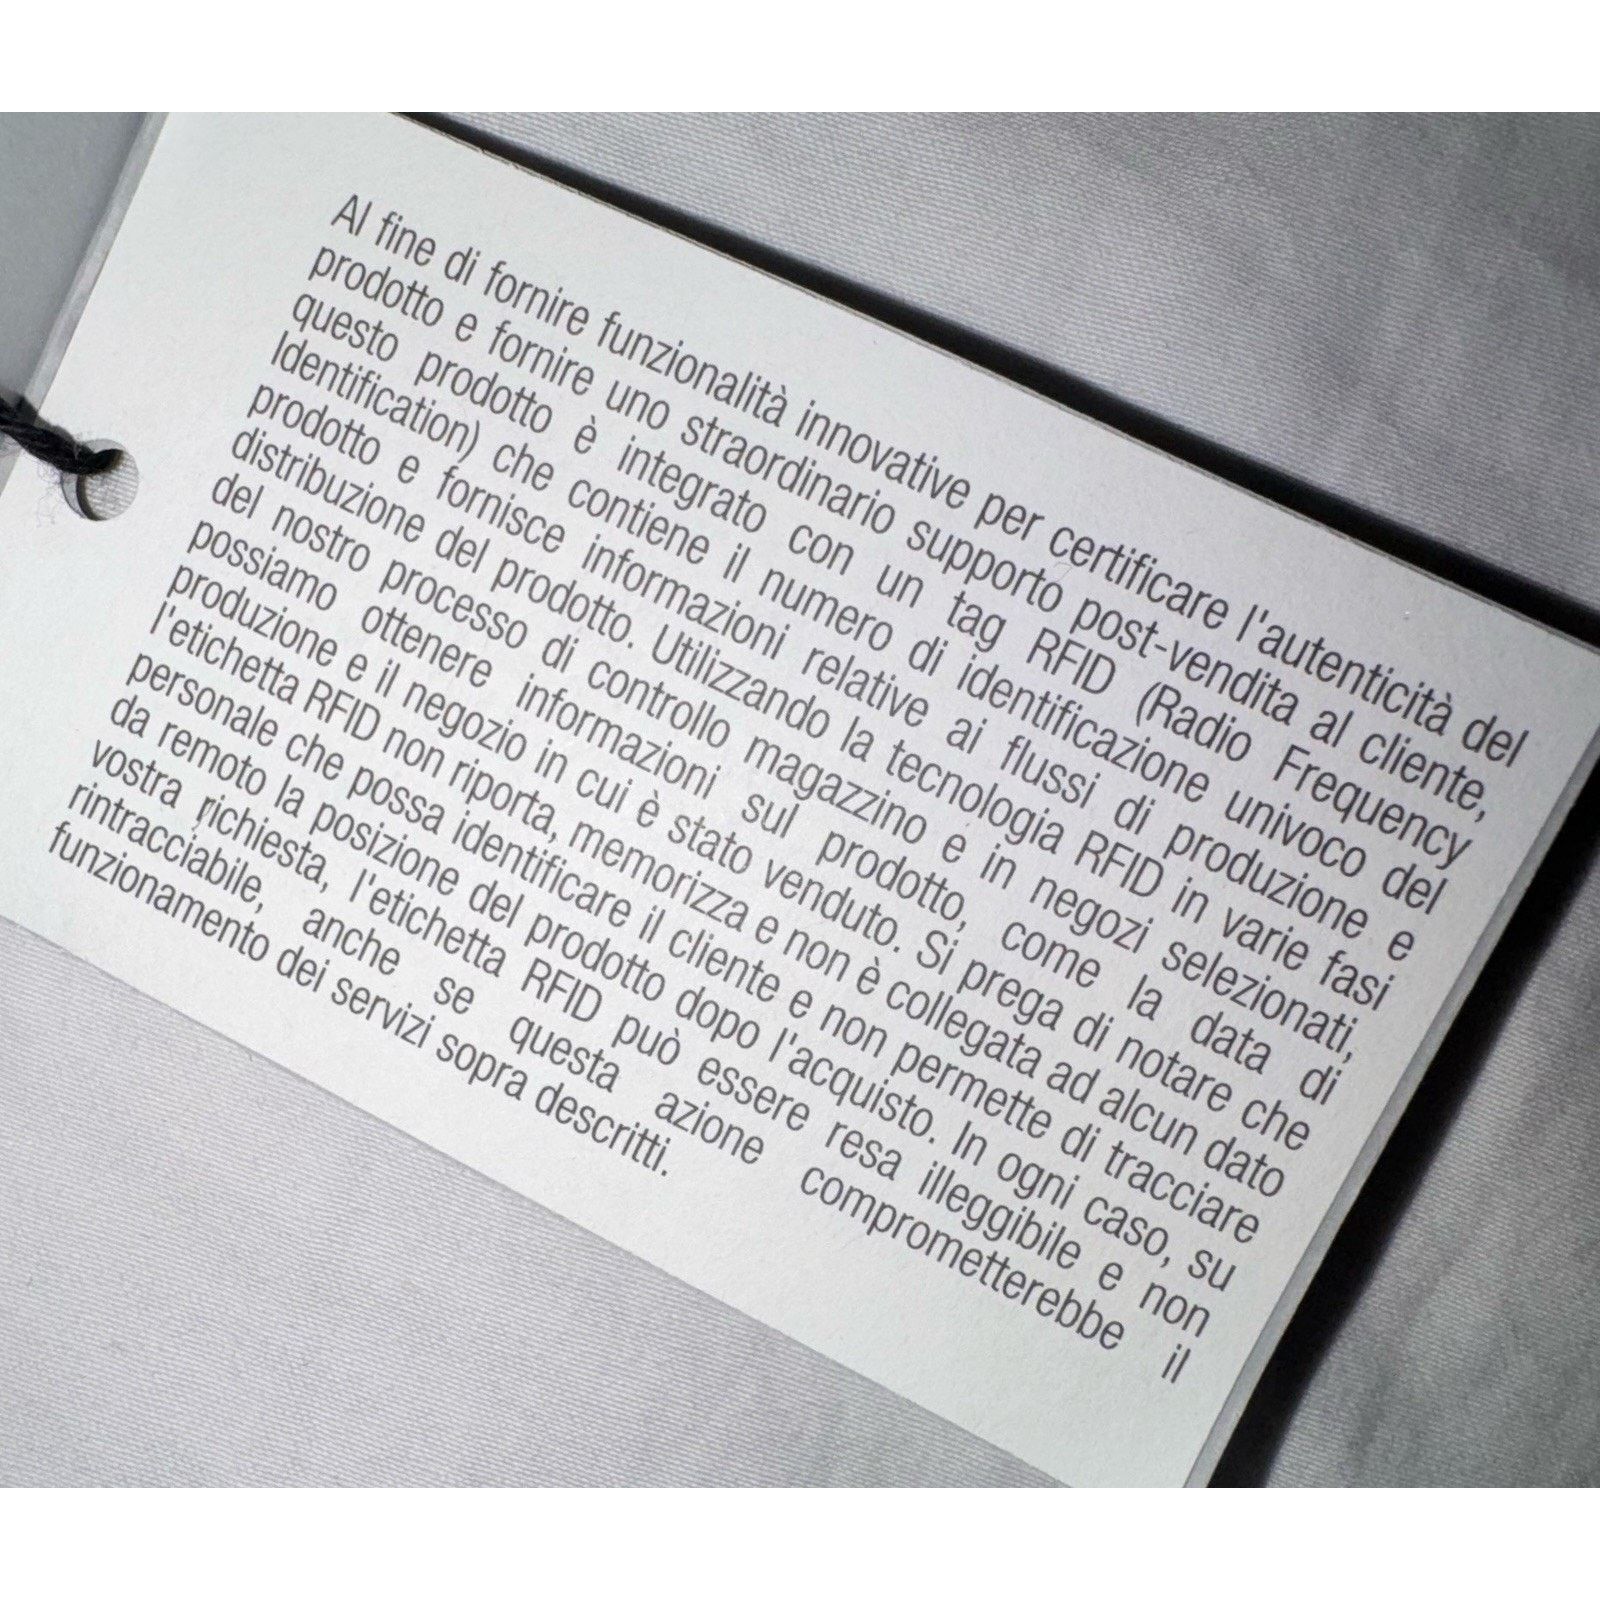 Al fine di fornire funzionalità innovative per certificare l'autenticità del
prodotto e fornire uno straordinario supporto post-vendita al cliente,
questo prodotto è integrato con un tag RFID (Radio Frequency
Identification) che contiene il numero di identificazione univoco del
prodotto e fornisce informazioni relative ai flussi di produzione e
distribuzione del prodotto. Utilizzando la tecnologia RFID in varie fasi
del nostro processo di controllo magazzino e in negozi selezionati,
possiamo ottenere informazioni sul prodotto, come la data di
produzione e il negozio in cui è stato venduto. Si prega di notare che
l'etichetta RFID non riporta, memorizza e non è collegata ad alcun dato
personale che possa identificare il cliente e non permette di tracciare
da remoto la posizione del prodotto dopo l'acquisto. In ogni caso, su
vostra richiesta, l'etichetta RFID può essere resa illeggibile e non
rintracciabile, anche se questa azione comprometterebbe il
funzionamento dei servizi sopra descritti.